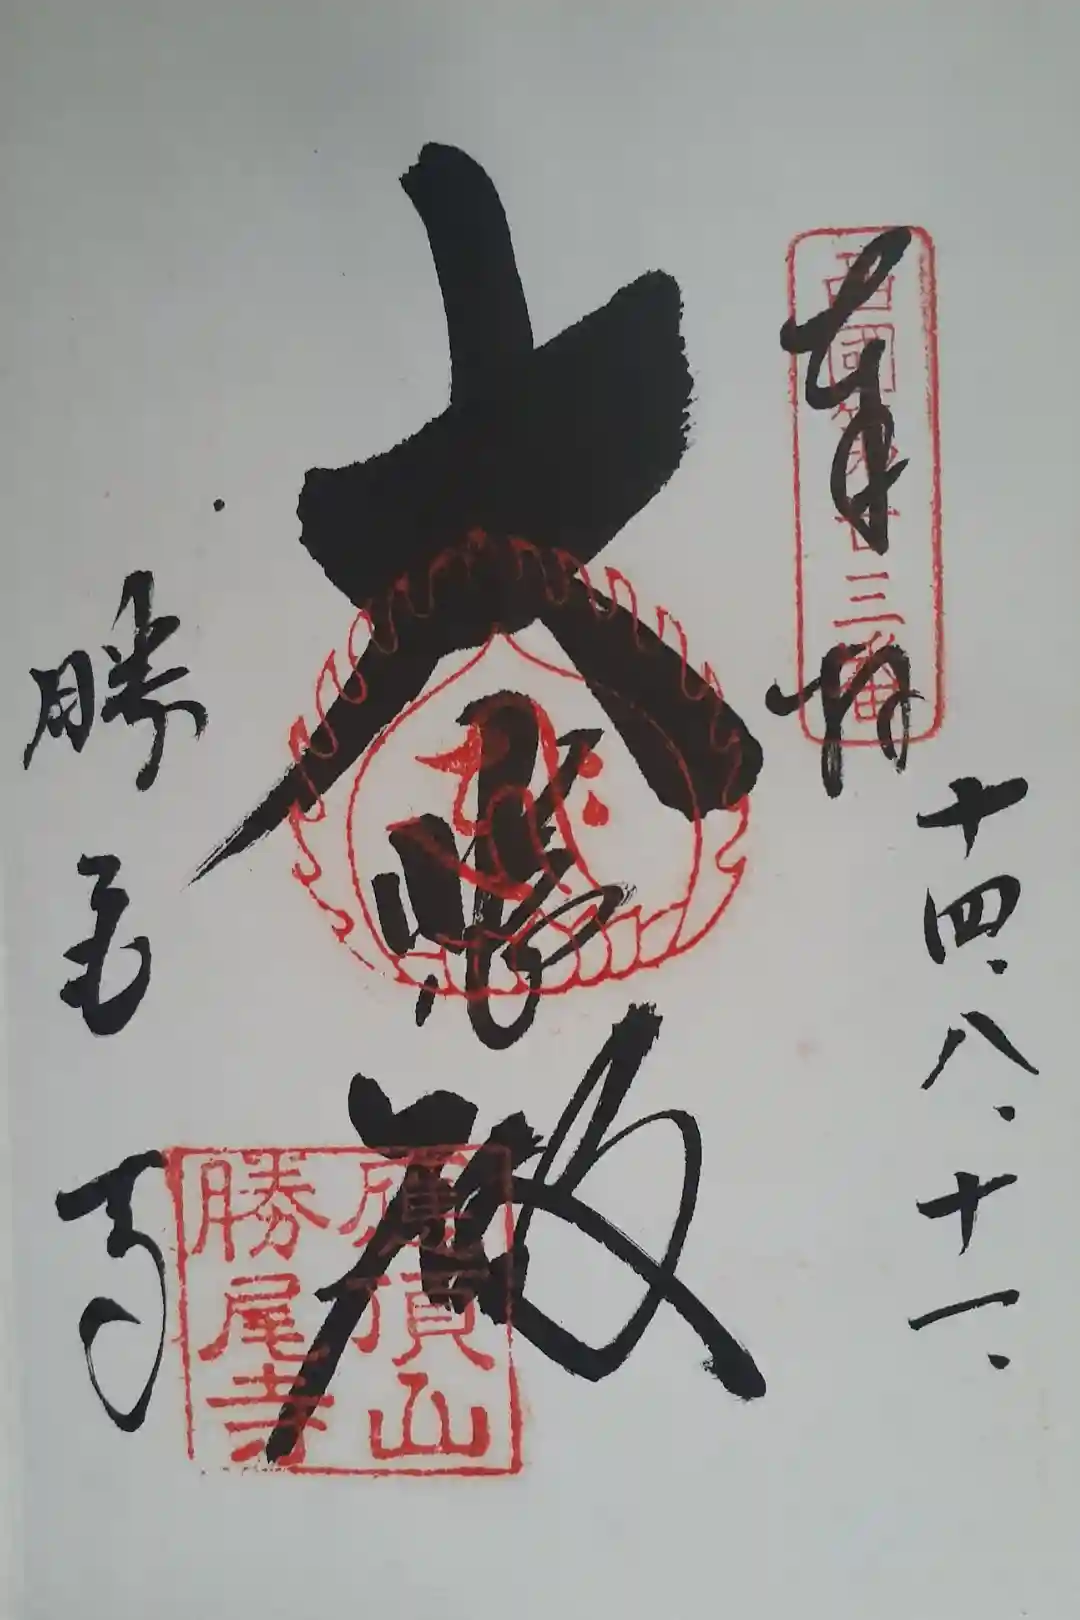 奉拝
西國第廿三番
十四.八.十一.
大悲殿
應頂山
勝尾寺
勝尾寺